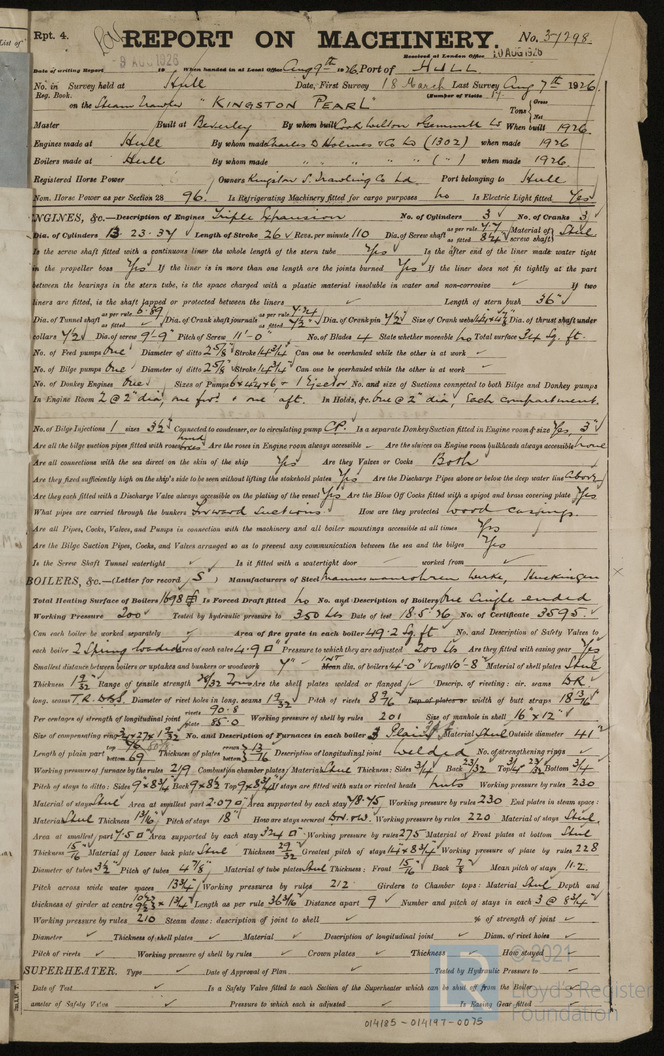 Rpt. 4.
REPORT ON MACHINERY. No. 31298.
9 AUG 1926
Received at London Office 10 AUG 1926
Date of writing Report 19 When handed in at Local Office Aug 9th 1926 Port of HULL
No. in Survey held at Hull Date, First Survey 18 March Last Survey Aug 7th 1926
Reg. Book. (Number of Visits
on the Steam Trawler "KINGSTON PEARL" Tons Gross Net
Master Built at Beverley By whom built Cook Welton & Gemmell Ld When built 1926
Engines made at Hull By whom made Charles D Holmes & Co Ld (1302) when made 1926
Boilers made at Hull By whom made " " " " ( " ) when made 1926
Registered Horse Power Owners Kingston S. Trawling Co Ld. Port belonging to Hull
Nom. Horse Power as per Section 28 96. Is Refrigerating Machinery fitted for cargo purposes No Is Electric Light fitted Yes
ENGINES, &c.—Description of Engines Triple Expansion No. of Cylinders 3 No. of Cranks 3
Dia. of Cylinders 13. 23. 37 Length of Stroke 26 Revs. per minute 110 Dia. of Screw shaft as per rule as fitted Material of screw shaft Steel
Is the screw shaft fitted with a continuous liner the whole length of the stern tube Yes Is the after end of the liner made water tight
in the propeller boss Yes If the liner is in more than one length are the joints burned Yes If the liner does not fit tightly at the part
between the bearings in the stern tube, is the space charged with a plastic material insoluble in water and non-corrosive If two
liners are fitted, is the shaft lapped or protected between the liners Length of stern bush 36"
Dia. of Tunnel shaft as per rule 6.89 as fitted Dia. of Crank shaft journals as per rule 7.24 as fitted 7½ Dia. of Crank pin 7½ Size of Crank webs Dia. of thrust shaft under
collars 7½ Dia. of screw 9'-9" Pitch of Screw 11'-0" No. of Blades 4 State whether moveable No Total surface 34 Sq. ft.
No. of Feed pumps One Diameter of ditto 2⅝ Stroke 14¾ Can one be overhauled while the other is at work
No. of Bilge pumps One Diameter of ditto 2⅝ Stroke 14¾ Can one be overhauled while the other is at work
No. of Donkey Engines One Sizes of Pumps 6x4¼x6 & 1 Ejector No. and size of Suctions connected to both Bilge and Donkey pumps
In Engine Room 2 @ 2" dia, one for'd & one aft. In Holds, &c. One @ 2" dia, Each compartment.
No. of Bilge Injections 1 sizes 3½ Connected to condenser, or to circulating pump CP. Is a separate Donkey Suction fitted in Engine room & size Yes, 3"
Are all the bilge suction pipes fitted with roses Are the roses in Engine room always accessible Are the sluices on Engine room bulkheads always accessible None
Are all connections with the sea direct on the skin of the ship Yes Are they Valves or Cocks Both
Are they fixed sufficiently high on the ship's side to be seen without lifting the stokehold plates Yes Are the Discharge Pipes above or below the deep water line Above
Are they each fitted with a Discharge Valve always accessible on the plating of the vessel Yes Are the Blow Off Cocks fitted with a spigot and brass covering plate Yes
What pipes are carried through the bunkers Forward Suctions How are they protected Wood casings.
Are all Pipes, Cocks, Valves, and Pumps in connection with the machinery and all boiler mountings accessible at all times Yes
Are the Bilge Suction Pipes, Cocks, and Valves arranged so as to prevent any communication between the sea and the bilges Yes
Is the Screw Shaft Tunnel watertight Is it fitted with a watertight door worked from
BOILERS, &c.—(Letter for record S) Manufacturers of Steel Mannesmannrohren Werke, Huckingen
Total Heating Surface of Boilers 1698 Is Forced Draft fitted No No. and Description of Boilers One Single ended
Working Pressure 200 Tested by hydraulic pressure to 350 Lbs Date of test 18.5.26 No. of Certificate 3595.
Can each boiler be worked separately Area of fire grate in each boiler 49.2 Sq. ft No. and Description of Safety Valves to
each boiler 2 Spring loaded Area of each valve 4.9 Pressure to which they are adjusted 200 Lbs Are they fitted with easing gear Yes
Smallest distance between boilers or uptakes and bunkers or woodwork 7" Mean dia. of boilers Length 10'-8" Material of shell plates Steel
Thickness 1 9/32 Range of tensile strength 28/32 Tons Are the shell plates welded or flanged Descrip. of riveting: cir. seams DR
long. seams TR.DBS Diameter of rivet holes in long. seams 1 9/32 Pitch of rivets 8 9/16 Lap of plates or width of butt straps 18 3/16
Per centages of strength of longitudinal joint rivets 90.8 plate 85.0 Working pressure of shell by rules 201 Size of manhole in shell 16 x 12"
Size of compensating ring No. and Description of Furnaces in each boiler 3 Plain Material Steel Outside diameter 41"
Length of plain part top bottom 69 Thickness of plates crown bottom 13/16 Description of longitudinal joint Welded No. of strengthening rings
Working pressure of furnace by the rules 219 Combustion chamber plates: Material Steel Thickness: Sides ¾ Back 23/32 Top Bottom ¾
Pitch of stays to ditto: Sides 9x8¾ Back 9x8½ Top 9x8¾ If stays are fitted with nuts or riveted heads Nuts Working pressure by rules 230
Material of stays Steel Area at smallest part 2.07 Area supported by each stay 78.75 Working pressure by rules 230 End plates in steam space:
Material Steel Thickness 1 1/16 Pitch of stays 18" How are stays secured Working pressure by rules 220 Material of stays Steel
Area at smallest part 7.50 Area supported by each stay 324 Working pressure by rules 275 Material of Front plates at bottom Steel
Thickness 15/16 Material of Lower back plate Steel Thickness 29/32 Greatest pitch of stays 14 x 8¾ Working pressure of plate by rules 228
Diameter of tubes 3½ Pitch of tubes 4⅞" Material of tube plates Steel Thickness: Front 15/16 Back ⅞ Mean pitch of stays 11.2.
Pitch across wide water spaces 13¾ Working pressures by rules 212 Girders to Chamber tops: Material Steel Depth and
thickness of girder at centre Length as per rule Distance apart 9 Number and pitch of stays in each 3 @ 8¾
Working pressure by rules 210 Steam dome: description of joint to shell % of strength of joint
Diameter Thickness of shell plates Material Description of longitudinal joint Diam. of rivet holes
Pitch of rivets Working pressure of shell by rules Crown plates Thickness How stayed
SUPERHEATER. Type Date of Approval of Plan Tested by Hydraulic Pressure to
Date of Test Is a Safety Valve fitted to each Section of the Superheater which can be shut off from the Boiler
ameter of Safety Valve Pressure to which each is adjusted Is Easing Gear fitted
© 2021
Lloyd's Register
Foundation
014185-014197-0075